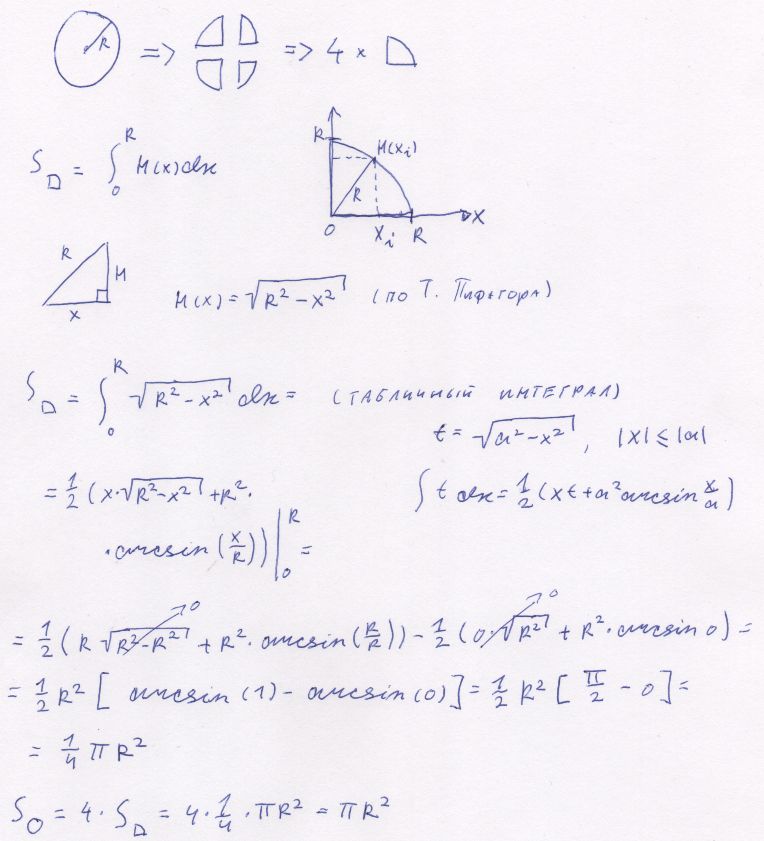 R => => 4 ×
S = ∫₀ᴿ H(x)dx
R H(xᵢ) R 0 xᵢ R X
R H x
H(x) = √(R² − x²) (по Т. Пифагора)
S = ∫₀ᴿ √(R² − x²) dx = (ТАБЛИЧНЫЙ ИНТЕГРАЛ)
t = √(a² − x²), |x| ≤ |a|
= 1/2 (x·√(R² − x²) + R²·
∫ t dx = 1/2 (xt + a² arcsin x/a)
· arcsin (x/R)) |₀ᴿ =
= 1/2 (R √(R² − R²) → 0 + R² · arcsin (R/R)) − 1/2 (0·√(R²) → 0 + R² · arcsin 0) =
= 1/2 R² [ arcsin (1) − arcsin (0) ] = 1/2 R² [ π/2 − 0 ] =
= 1/4 π R²
S = 4 · S = 4 · 1/4 · πR² = πR²